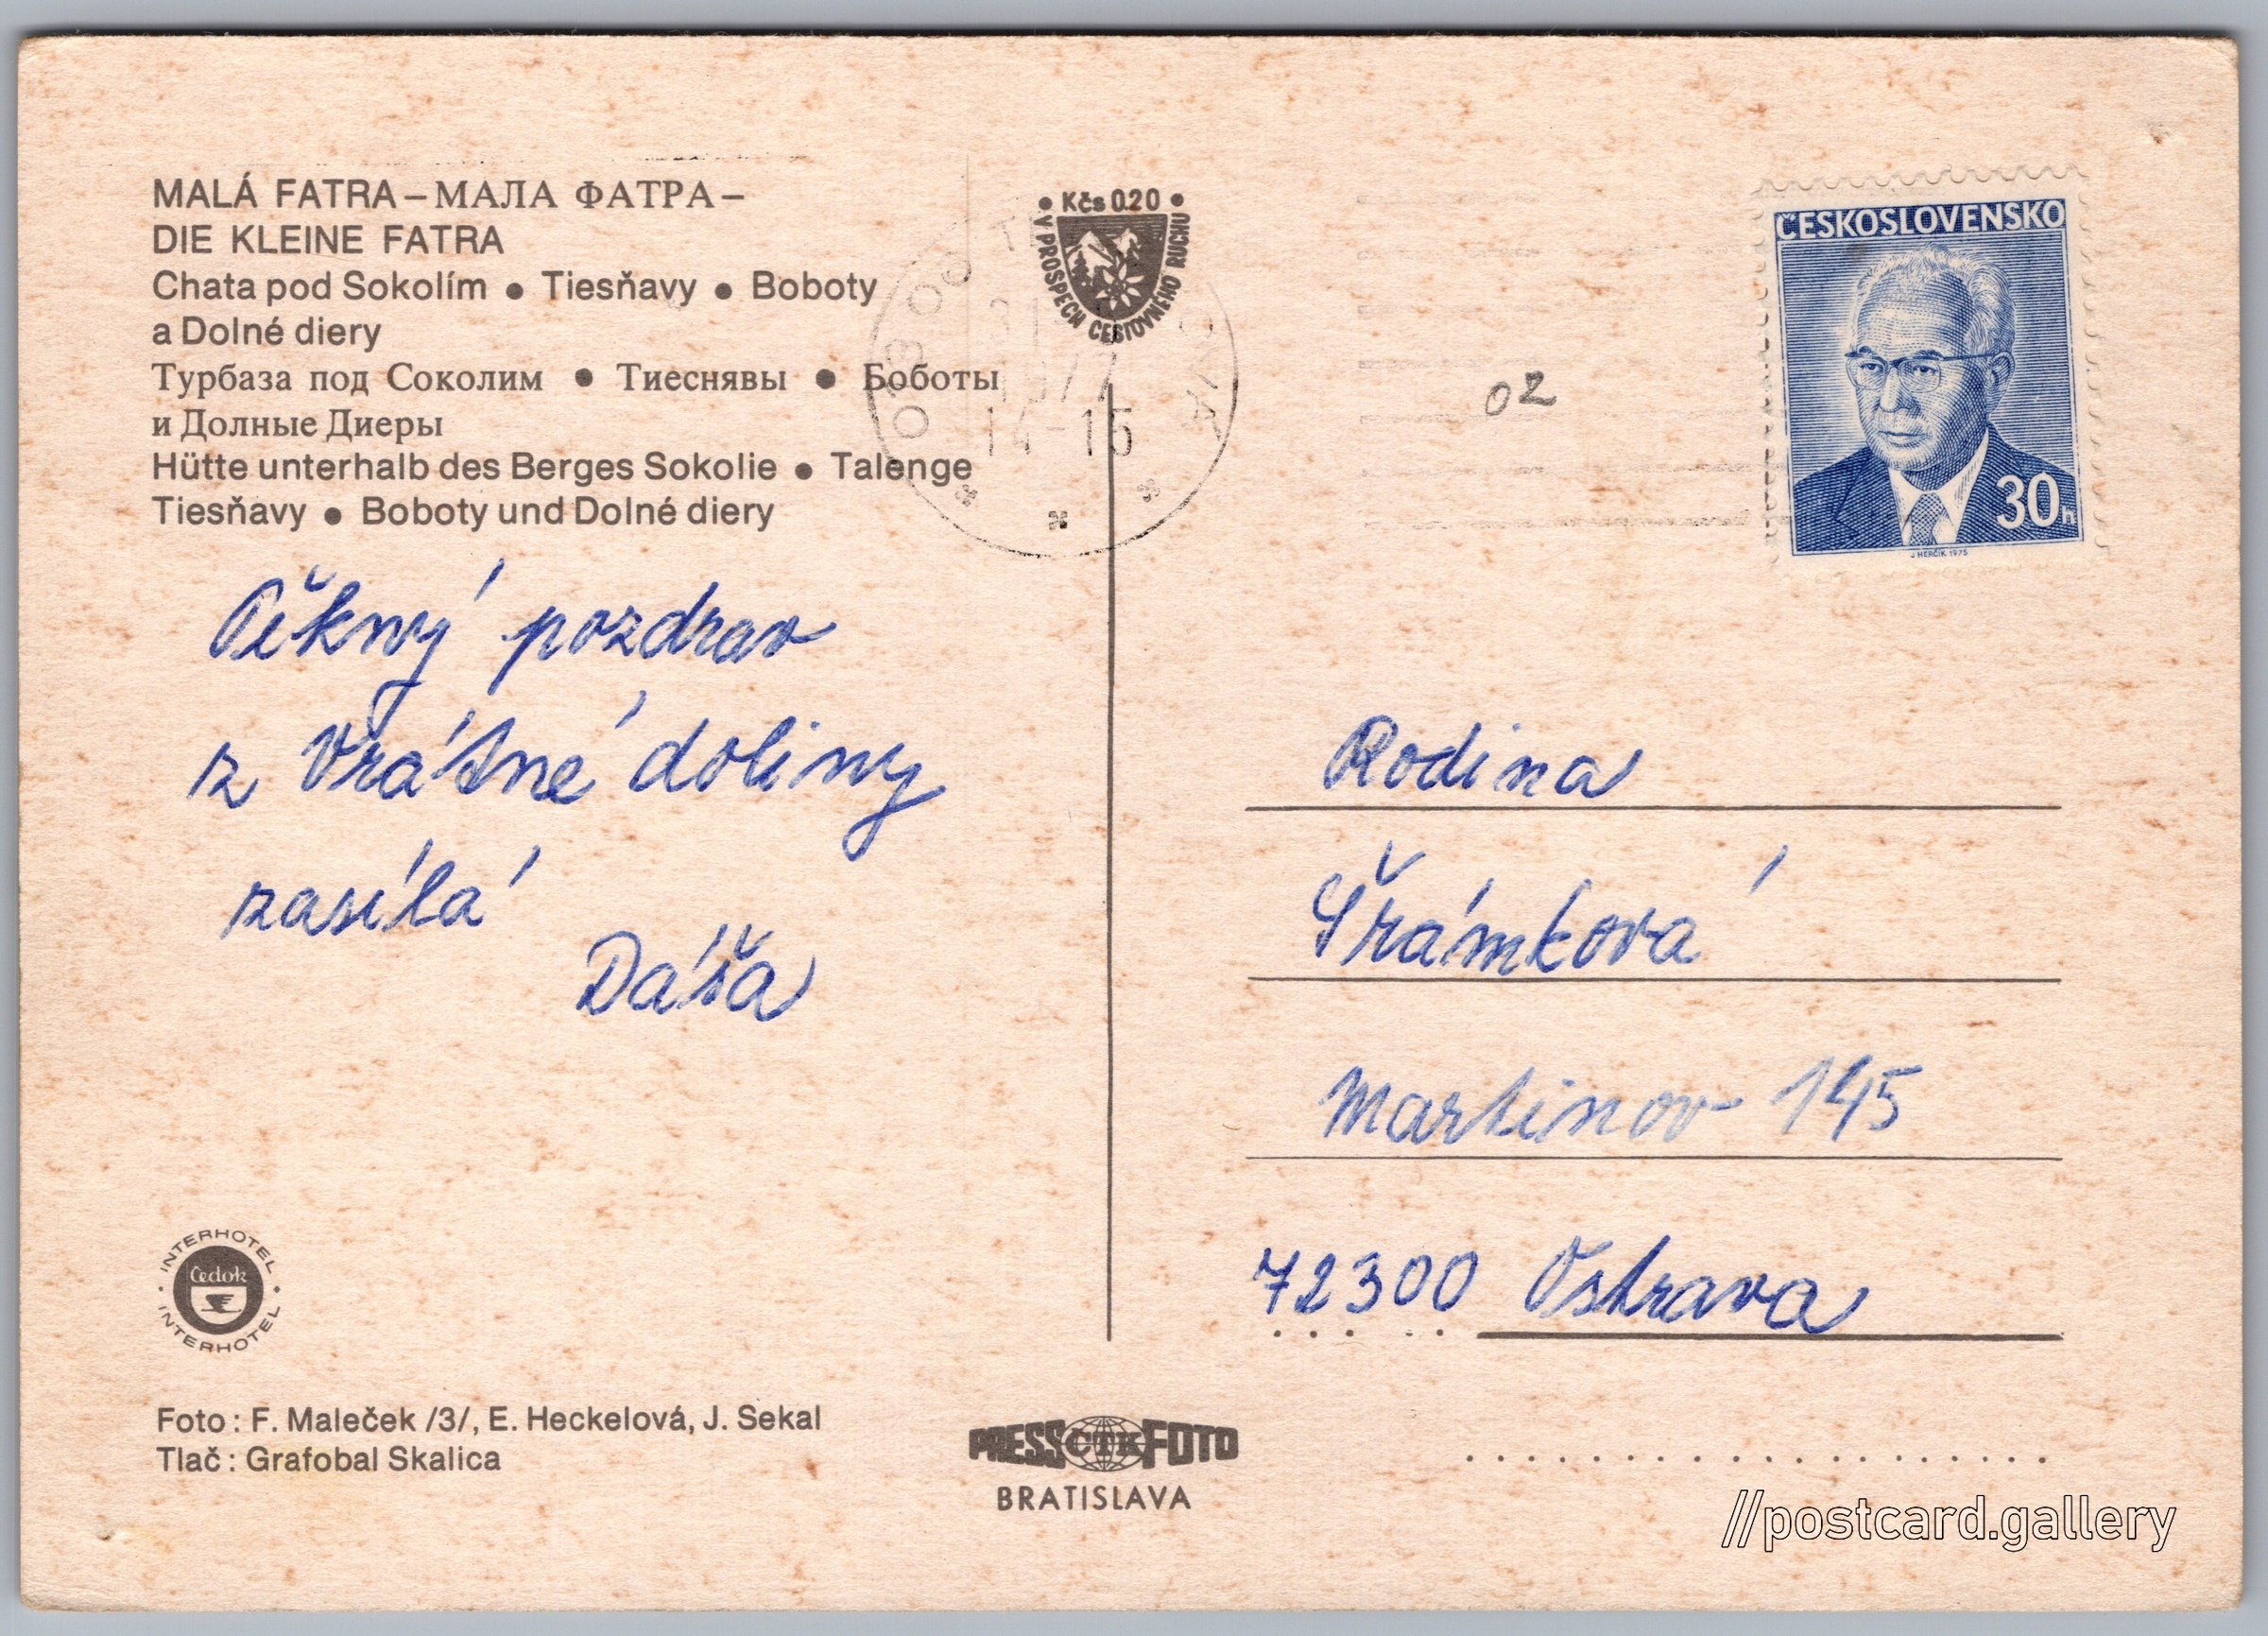 MALÁ FATRA – МАЛА ФАТРА –
DIE KLEINE FATRA
Chata pod Sokolím ● Tiesňavy ● Boboty
a Dolné diery
Турбаза под Соколим ● Тиеснявы ● Боботы
и Долные Диеры
Hütte unterhalb des Berges Sokolie ● Talenge
Tiesňavy ● Boboty und Dolné diery
● Kčs 0.20 ●
V PROSPECH CESTOVNÉHO RUCHU
14-15
02
ČESKOSLOVENSKO
30h
J. HERČÍK 1975
Pěkný pozdrav
z Vrátné doliny
zasílá
Dáša
Rodina
Šrámková
Martinov 145
72300 Ostrava
INTERHOTEL
Čedok
INTERHOTEL
Foto: F. Maleček /3/, E. Heckelová, J. Sekal
Tlač: Grafobal Skalica
PRESS ČTK FOTO
BRATISLAVA
//postcard.gallery